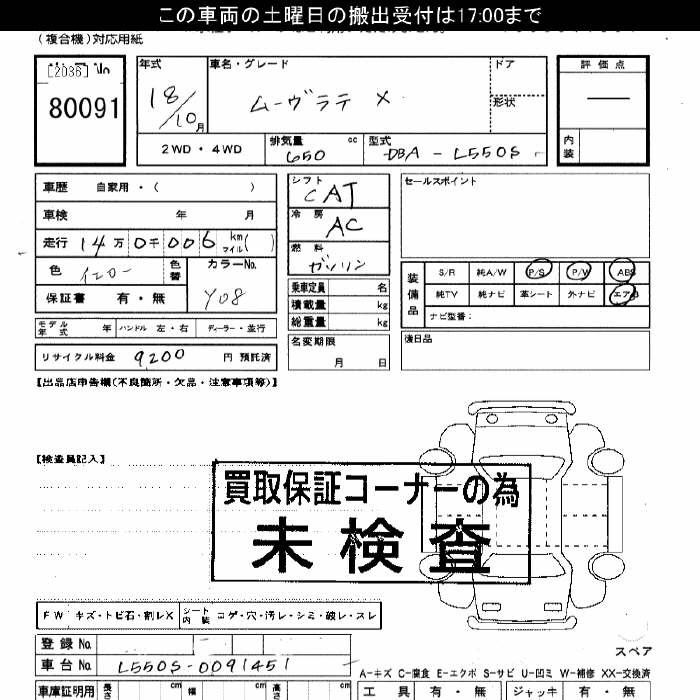 この車両の土曜日の搬出受付は17:00まで
(複合機)対応用紙
[2036] No
80091
年式
18/10月
車名・グレード
ムーヴラテ X
ドア
形状
2WD・4WD
排気量
650 cc
型式
DBA-L550S
評価点
—
内装
車歴 自家用・( )
車検 年 月
走行 14万0千006 km マイル( )
色 イエロー 色替
カラーNo.
Y08
保証書 有・無
モデル年式 年 ハンドル 左・右 ディーラー・並行
リサイクル料金 9200 円 預託済
シフト
CAT
冷房
AC
燃料
ガソリン
乗車定員 名
積載量 kg
総重量 kg
名変期限
月 日
セールスポイント
装備品
S/R 純A/W P/S P/W ABS
純TV 純ナビ 革シート 外ナビ エアB
ナビ型番:
後日品
【出品店申告欄(不良箇所・欠品・注意事項等)】
【検査員記入】
買取保証コーナーの為
未検査
FW キズ・トビ石・割レX シート内装 コゲ・穴・汚レ・シミ・破レ・スレ
登録No.
車台No. L550S-0091451
スペア
A-キズ C-腐食 E-エクボ S-サビ U-凹ミ W-補修 XX-交換済
車庫証明用 長さ cm 幅 cm 高さ cm
工具 有・無 ジャッキ 有・無